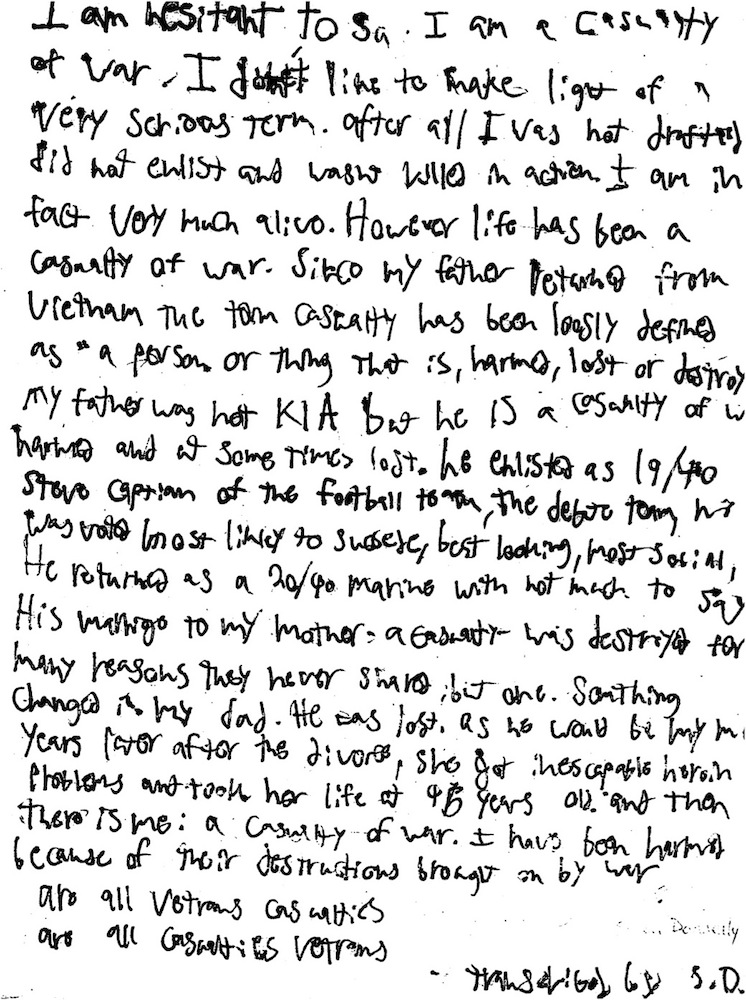 I am hesitant to Sa. I am a Casualty
of war. I don't like to make light of a
very serious term. after all I was not drafted
did not enlist and wasnt killed in action. I am in
fact very much alive. However life has been a
casualty of war. Since my father returned from
Vietnam the term casualty has been loosly defined
as "a person or thing that is, harmed, lost or destroy
my father was not KIA but he is a casualty of w
harmed and at some times lost. he enlisted as 19/yo
Steve Captian of the football team, the debate team
was vote most likely to sucsese, best looking, most social,
He returned as a 20/yo marine with not much to say
His marrige to my mother - a casualty - was destroyed for
many reasons they never shared, but one. Somthing
Changed in my dad. He was lost. as he would be my m
years later after the divorse, she got inescapable heroin
Problems and took her life at 45 years old. and then
there is me: a Casualty of war. I have been harmed
because of their destructions brought on by war
are all Vetrans casualties
are all Casualties Vetrans
Donnelly
- transcribed by S.D.